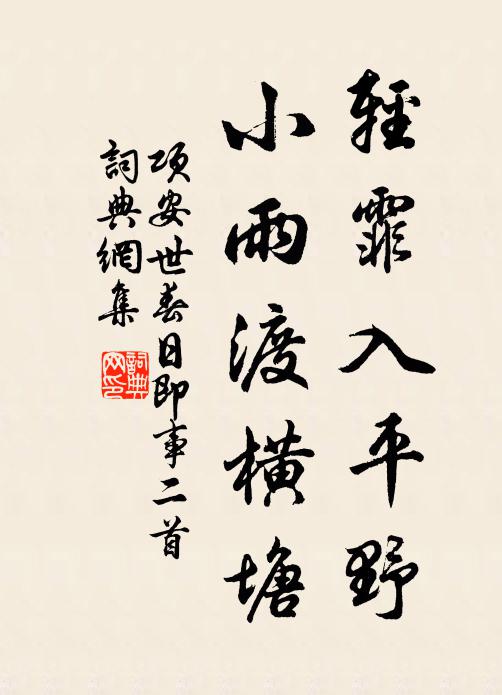 輕霏入平野
小雨渡橫塘
項安世春日即事二首
詞典網集
詞典网印